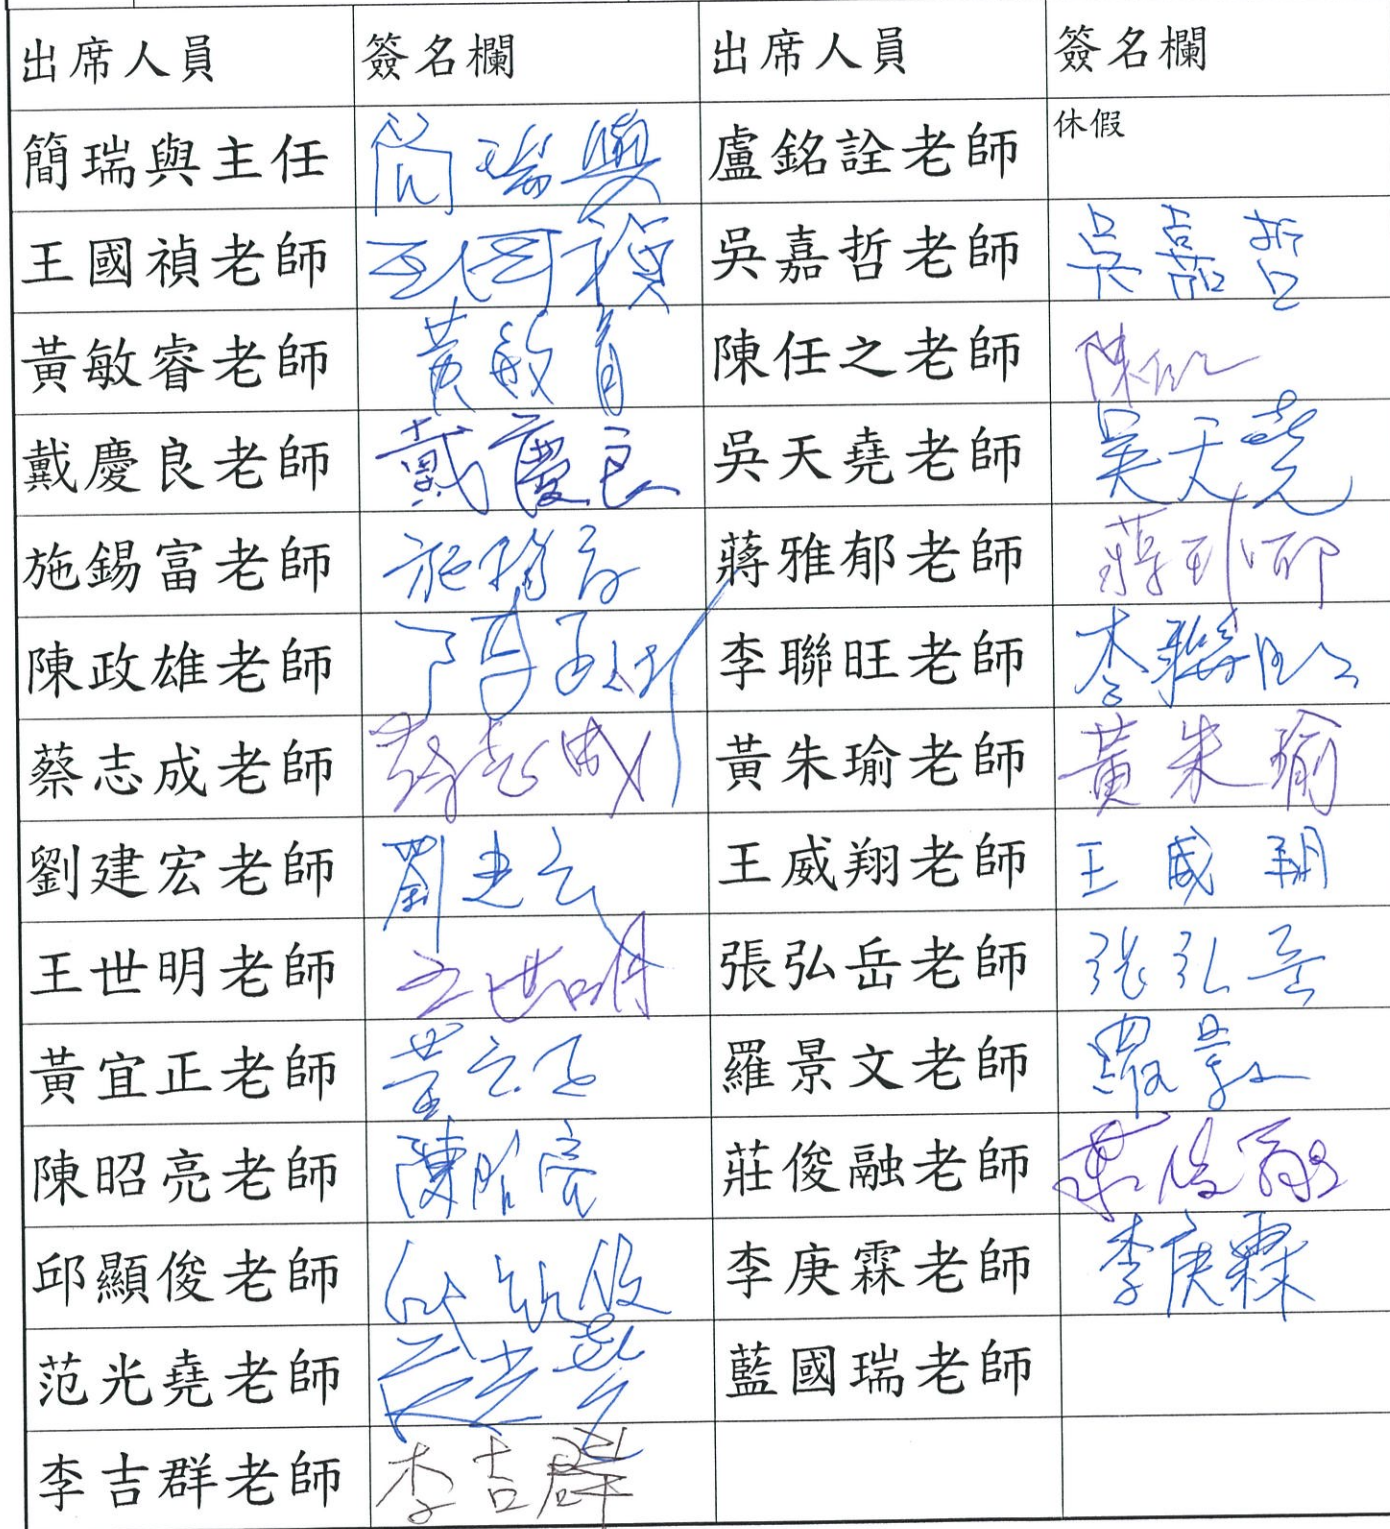 出席人員 簽名欄 出席人員 簽名欄
簡瑞與主任 簡瑞與 盧銘詮老師 休假
王國禎老師 王國禎 吳嘉哲老師 吳嘉哲
黃敏睿老師 黃敏睿 陳任之老師 陳任之
戴慶良老師 戴慶良 吳天堯老師 吳天堯
施錫富老師 施錫富 蔣雅郁老師 蔣雅郁
陳政雄老師 陳政雄 李聯旺老師 李聯旺
蔡志成老師 蔡志成 黃朱瑜老師 黃朱瑜
劉建宏老師 劉建宏 王威翔老師 王威翔
王世明老師 王世明 張弘岳老師 張弘岳
黃宜正老師 黃宜正 羅景文老師 羅景文
陳昭亮老師 陳昭亮 莊俊融老師 莊俊融
邱顯俊老師 邱顯俊 李庚霖老師 李庚霖
范光堯老師 范光堯 藍國瑞老師
李吉群老師 李吉群